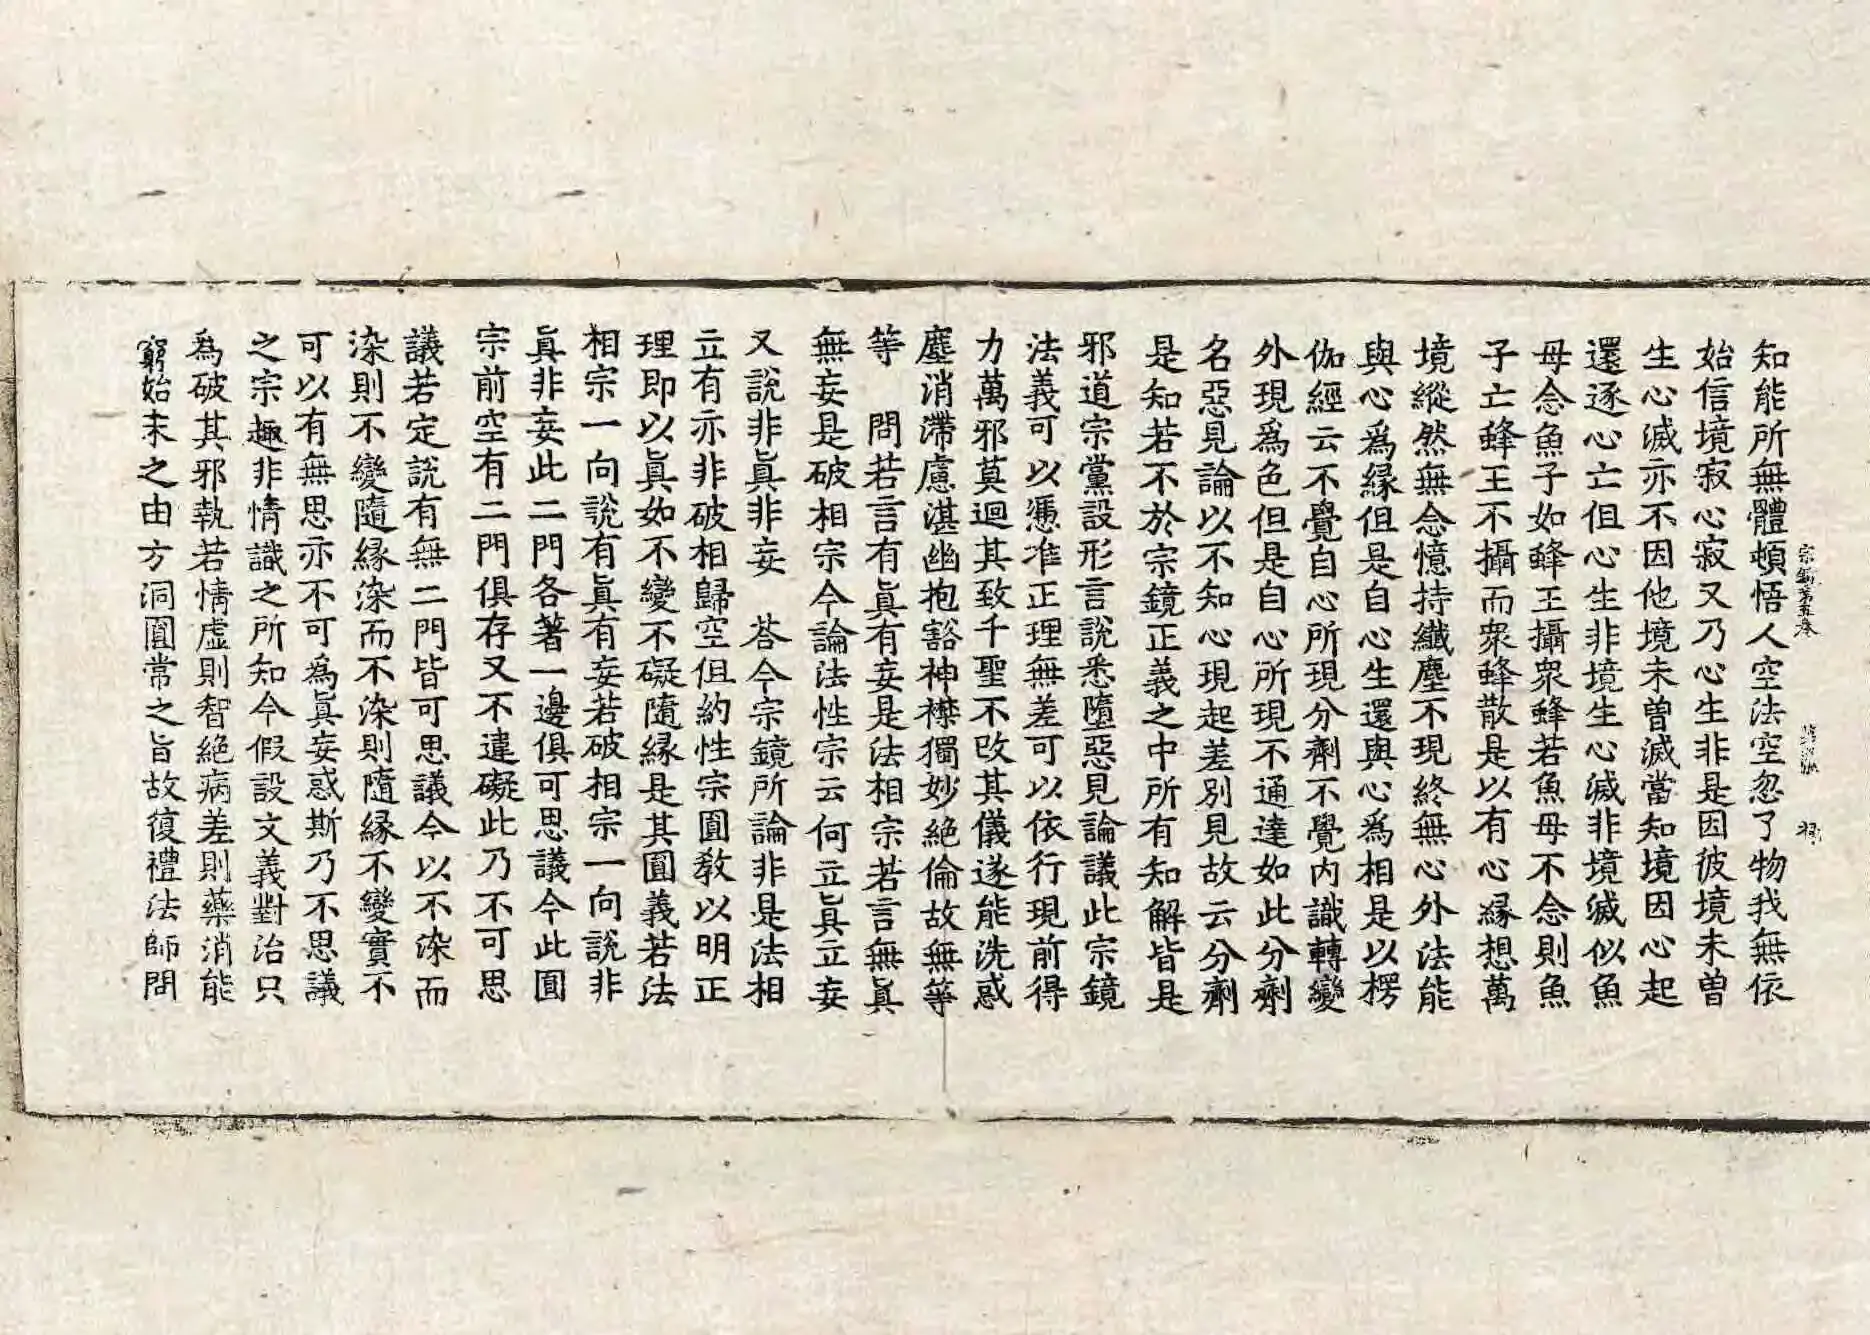 知能所無體頓悟人空法空忽了物我無依
始信境寂心寂又乃心生非是因彼境未曾
生心滅亦不因他境未曾滅當知境因心起
還逐心亡但心生非境生心滅非境滅似魚
母念魚子如蜂王攝衆蜂若魚母不念則魚
子亡蜂王不攝而衆蜂散是以有心緣想萬
境縱然無念憶持纖塵不現終無心外法能
與心爲緣但是自心生還與心爲相是以楞
伽經云不覺自心所現分劑不覺內識轉變
外現爲色但是自心所現不通達如此分劑
名惡見論以不知心現起差別見故云分劑
是知若不於宗鏡正義之中所有知解皆是
邪道宗黨設形言說悉墮惡見論議此宗鏡
法義可以憑准正理無差可以依行現前得
力萬邪莫迴其致千聖不改其儀遂能洗惑
塵消滯慮湛幽抱豁神襟獨妙絕倫故無等
等　問若言有眞有妄是法相宗若言無眞
無妄是破相宗今論法性宗云何立眞立妄
又說非眞非妄　荅今宗鏡所論非是法相
立有亦非破相歸空但約性宗圓教以明正
理即以眞如不變不礙隨緣是其圓義若法
相宗一向說有眞有妄若破相宗一向說非
眞非妄此二門各著一邊俱可思議今此圓
宗前空有二門俱存又不違礙此乃不可思
議若定說有無二門皆可思議今以不染而
染則不變隨緣染而不染則隨緣不變實不
可以有無思亦不可爲眞妄惑斯乃不思議
之宗趣非情識之所知今假設文義對治只
爲破其邪執若情虛則智絕病差則藥消能
窮始末之由方洞圓常之旨故復禮法師問
宗鏡第五卷